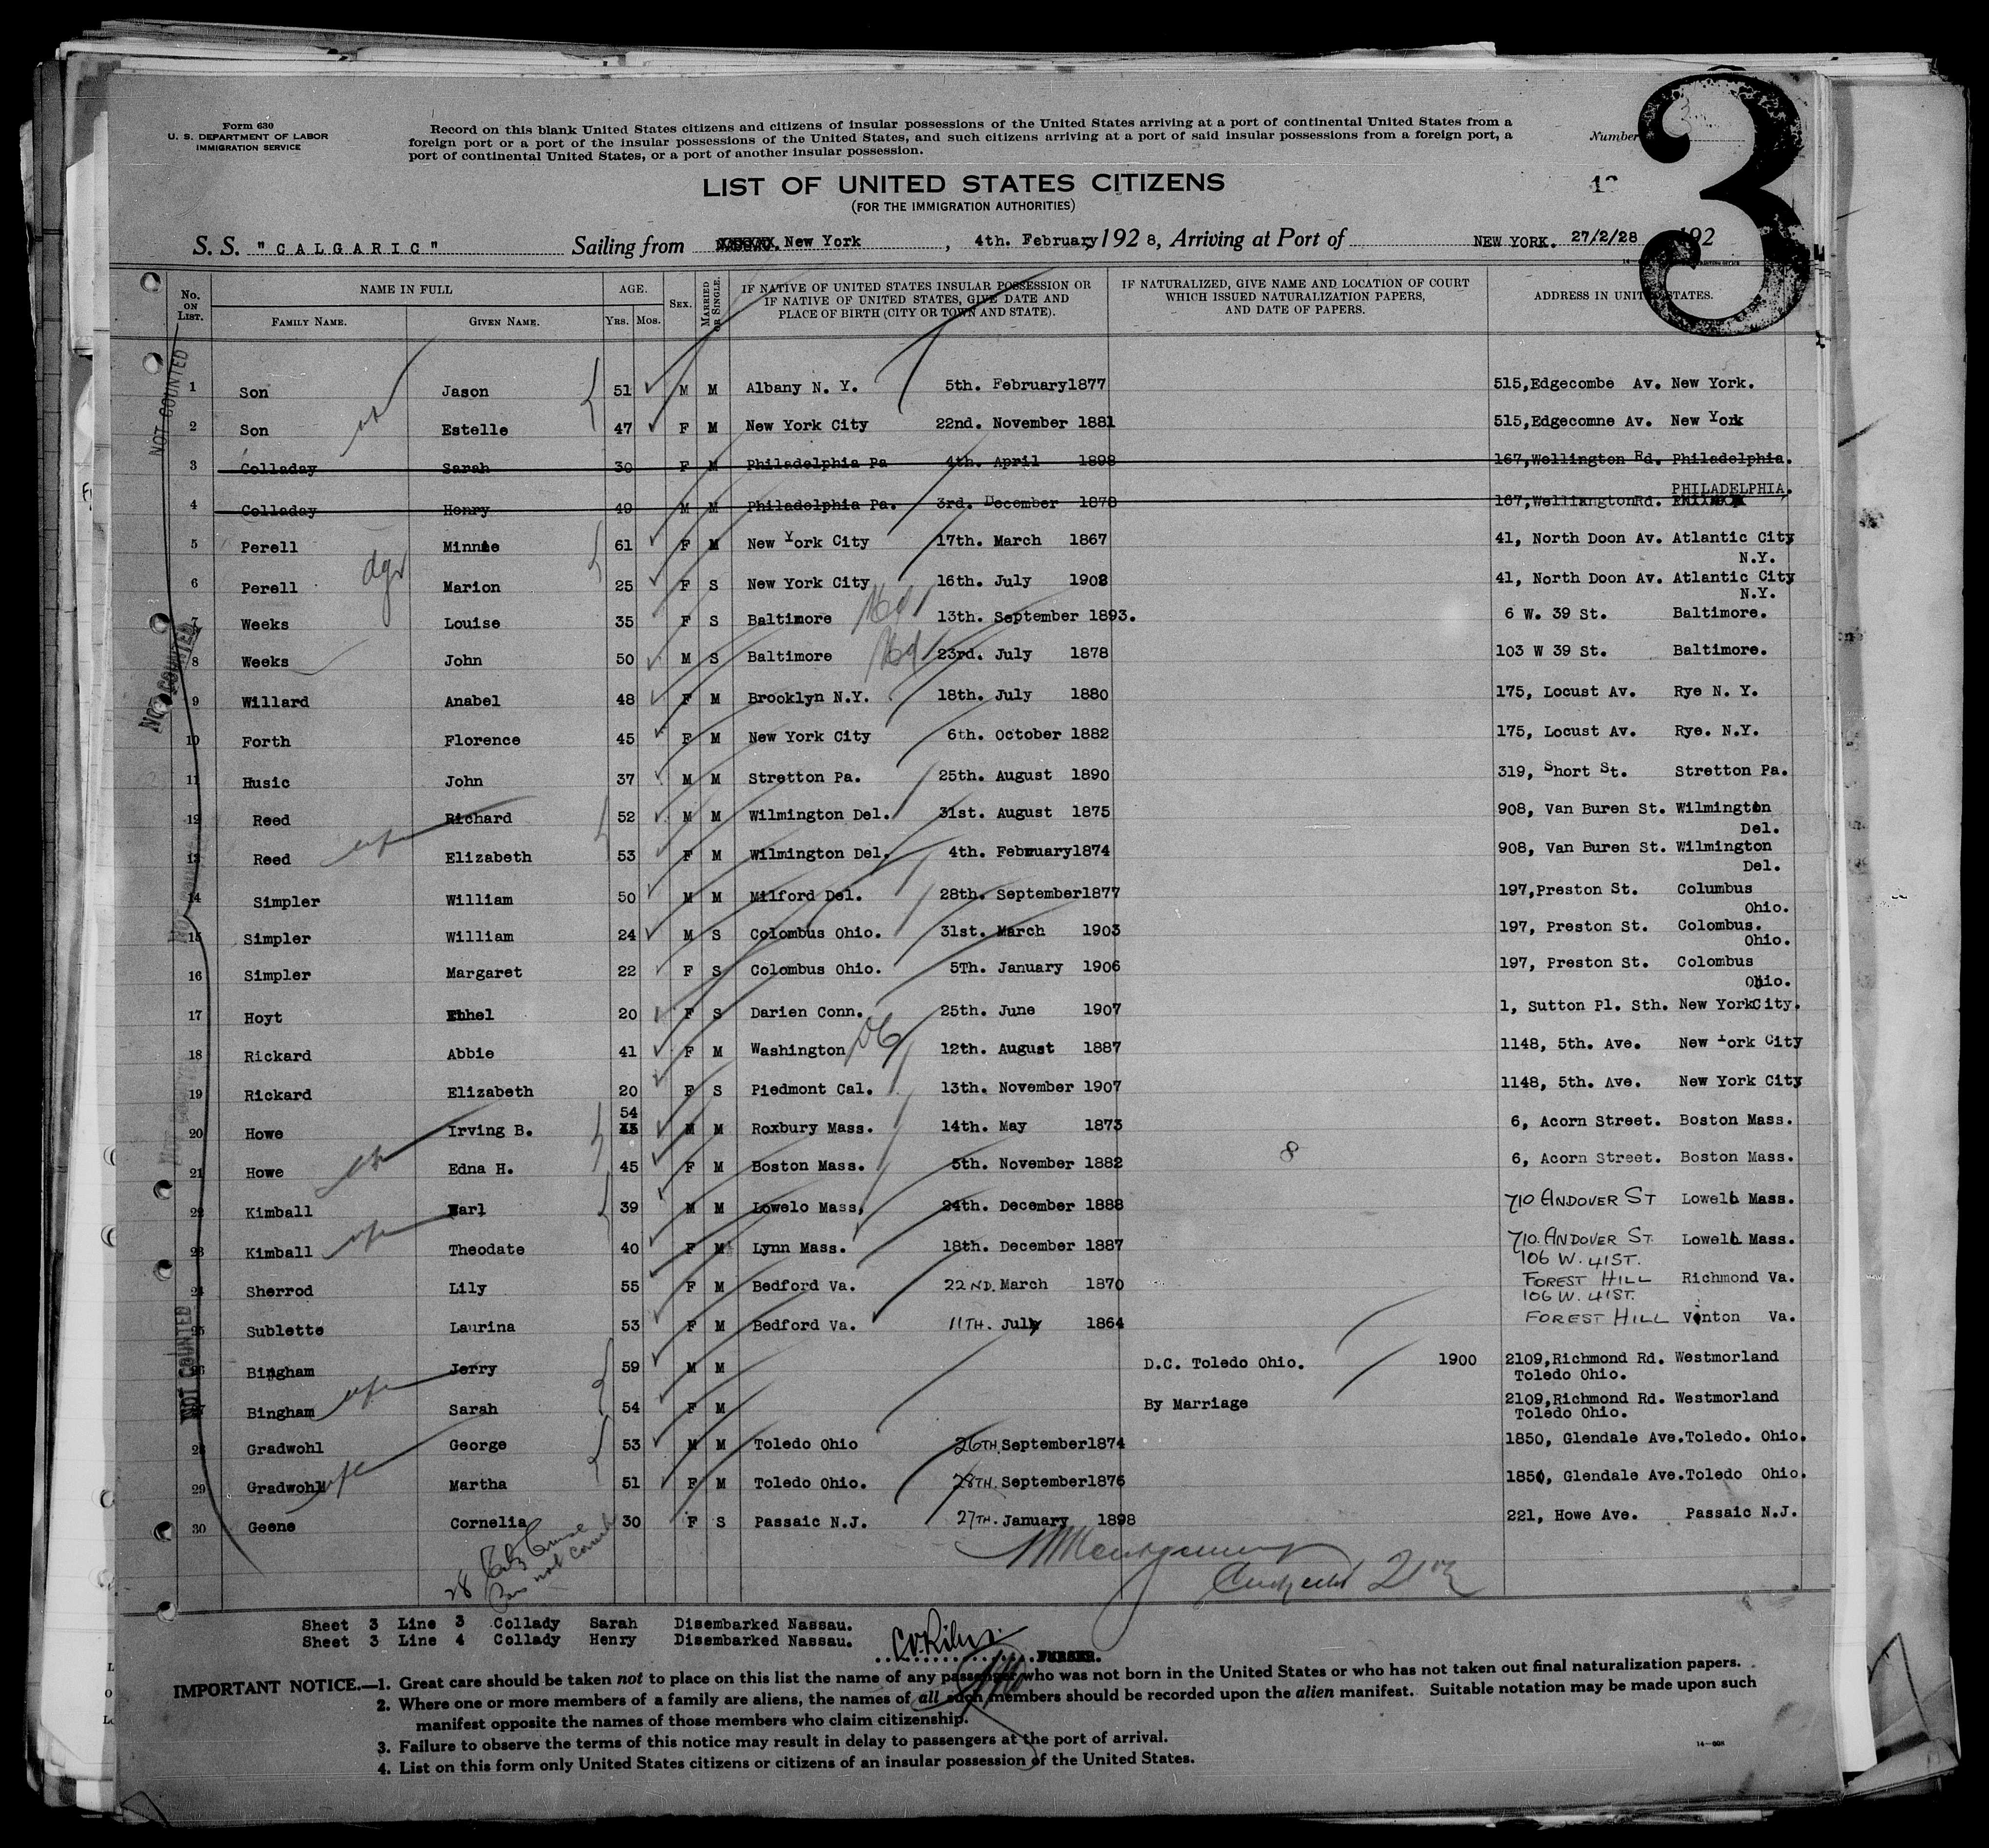 Form 630
U. S. DEPARTMENT OF LABOR
IMMIGRATION SERVICE
Record on this blank United States citizens and citizens of insular possessions of the United States arriving at a port of continental United States from a
foreign port or a port of the insular possessions of the United States, and such citizens arriving at a port of said insular possessions from a foreign port, a
port of continental United States, or a port of another insular possession.
Number
3
LIST OF UNITED STATES CITIZENS
(FOR THE IMMIGRATION AUTHORITIES)
S. S. "CALGARIC" Sailing from New York, 4th. February 1928, Arriving at Port of NEW YORK. 27/2/28 192
No. ON LIST. NAME IN FULL FAMILY NAME. GIVEN NAME. AGE. Yrs. Mos. SEX. MARRIED OR SINGLE. IF NATIVE OF UNITED STATES INSULAR POSSESSION OR IF NATIVE OF UNITED STATES, GIVE DATE AND PLACE OF BIRTH (CITY OR TOWN AND STATE). IF NATURALIZED, GIVE NAME AND LOCATION OF COURT WHICH ISSUED NATURALIZATION PAPERS, AND DATE OF PAPERS. ADDRESS IN UNITED STATES.
1 Son Jason 51 M M Albany N. Y. 5th. February1877 515,Edgecombe Av. New York.
2 Son Estelle 47 F M New York City 22nd. November 1881 515,Edgecomne Av. New York
3 Colladay Sarah 30 F M Philadelphia Pa 4th. April 1898 167,Wellington Rd. Philadelphia.
4 Colladay Henry 49 M M Philadelphia Pa. 3rd. December 1878 167,WelliangtonRd. PHILADELPHIA.
5 Perell Minnie 61 F M New York City 17th. March 1867 41, North Doon Av. Atlantic City N.Y.
6 Perell Marion 25 F S New York City 16th. July 1902 41, North Doon Av. Atlantic City N.Y.
7 Weeks Louise 35 F S Baltimore Md 13th. September 1893. 6 W. 39 St. Baltimore.
8 Weeks John 50 M S Baltimore Md 23rd. July 1878 103 W 39 St. Baltimore.
9 Willard Anabel 48 F M Brooklyn N.Y. 18th. July 1880 175, Locust Av. Rye N. Y.
10 Forth Florence 45 F M New York City 6th. October 1882 175, Locust Av. Rye. N.Y.
11 Husic John 37 M M Stretton Pa. 25th. August 1890 319, Short St. Stretton Pa.
12 Reed Richard 52 M M Wilmington Del. 31st. August 1875 908, Van Buren St. Wilmington Del.
13 Reed Elizabeth 53 F M Wilmington Del. 4th. February1874 908, Van Buren St. Wilmington Del.
14 Simpler William 50 M M Milford Del. 28th. September1877 197,Preston St. Columbus Ohio.
15 Simpler William 24 M S Colombus Ohio. 31st. March 1903 197, Preston St. Colombus. Ohio.
16 Simpler Margaret 22 F S Colombus Ohio. 5Th. January 1906 197, Preston St. Colombus Ohio.
17 Hoyt Ethel 20 F S Darien Conn. 25th. June 1907 1, Sutton Pl. Sth. New YorkCity.
18 Rickard Abbie 41 F M Washington DC 12th. August 1887 1148, 5th. Ave. New York City
19 Rickard Elizabeth 20 F S Piedmont Cal. 13th. November 1907 1148, 5th. Ave. New York City
20 Howe Irving B. 54 M M Roxbury Mass. 14th. May 1873 6, Acorn Street. Boston Mass.
21 Howe Edna H. 45 F M Boston Mass. 5th. November 1882 8 6, Acorn Street. Boston Mass.
22 Kimball Earl 39 M M Lowelo Mass. 24th. December 1888 710 ANDOVER ST Lowell Mass.
23 Kimball Theodate 40 F M Lynn Mass. 18th. December 1887 710. ANDOVER ST Lowell Mass.
24 Sherrod Lily 55 F M Bedford Va. 22ND. March 1870 106 W. 41ST. FOREST HILL Richmond Va.
25 Sublette Laurina 53 F M Bedford Va. 11TH. July 1864 106 W. 41ST. FOREST HILL Vinton Va.
26 Bingham Jerry 59 M M D.C. Toledo Ohio. 1900 2109,Richmond Rd. Westmorland Toledo Ohio.
27 Bingham Sarah 54 F M By Marriage 2109,Richmond Rd. Westmorland Toledo Ohio.
28 Gradwohl George 53 M M Toledo Ohio 26TH. September1874 1850, Glendale Ave.Toledo. Ohio.
29 Gradwohl Martha 51 F M Toledo Ohio. 28TH. September1876 1850, Glendale Ave.Toledo Ohio.
30 Geene Cornelia 30 F S Passaic N.J. 27TH. January 1898 221, Howe Ave. Passaic N.J.
NOT COUNTED
NOT COUNTED
NOT COUNTED
wf
dgr
wife
wife
wife
wife
28 Citz Cruise
Do not count
Montgomery
Sheet 3 Line 3 Collady Sarah Disembarked Nassau.
Sheet 3 Line 4 Collady Henry Disembarked Nassau.
PURSER.
IMPORTANT NOTICE.—1. Great care should be taken not to place on this list the name of any passenger who was not born in the United States or who has not taken out final naturalization papers.
2. Where one or more members of a family are aliens, the names of all such members should be recorded upon the alien manifest. Suitable notation may be made upon such
manifest opposite the names of those members who claim citizenship.
3. Failure to observe the terms of this notice may result in delay to passengers at the port of arrival.
4. List on this form only United States citizens or citizens of an insular possession of the United States.
14—608